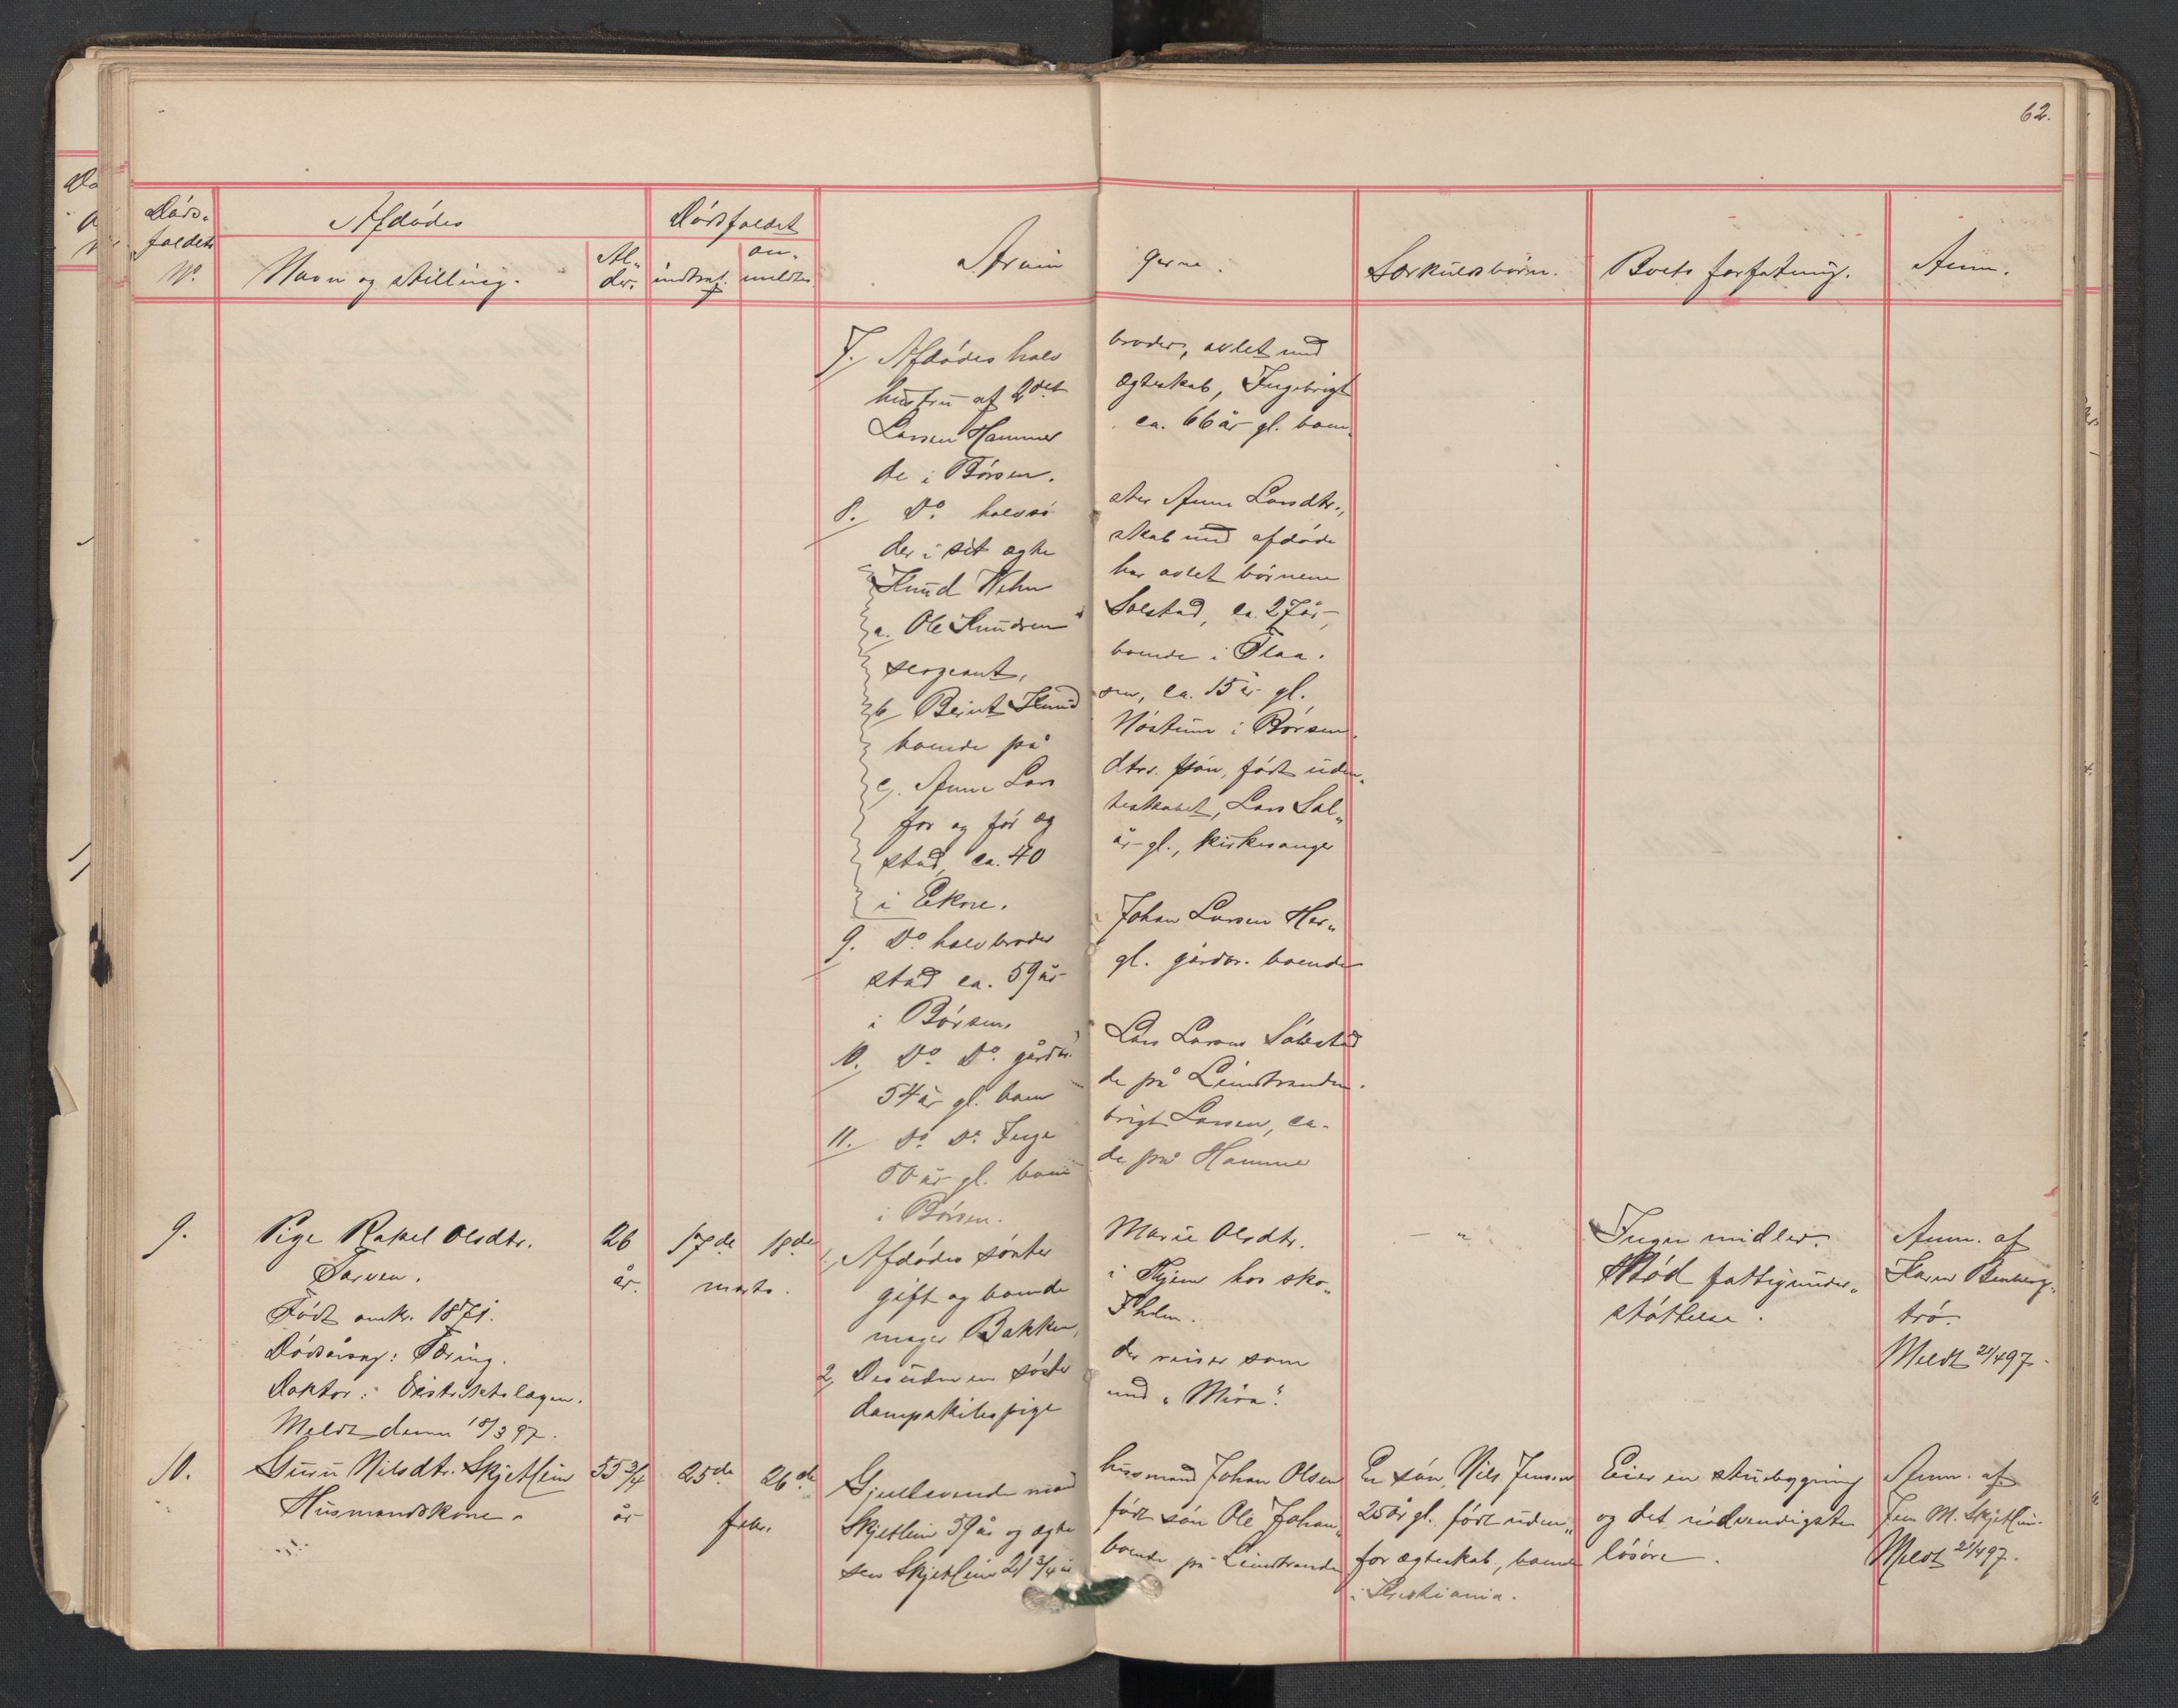 62.
Døds-
faldets
No.
Afdødes
Navn og stilling.
Al-
der.
Dødsfaldet
indtraf.
an-
meldtes.
Arvin gerne.
Særkuldsbørn.
Boets forfatning.
Anm.
7. Afdødes halv broder, avlet med
hustru af 2det ægteskab, Ingebrigt
Larsen Hammer ca. 66 år gl. boen-
de i Børsen.
8. Do. halvsø ster Anne Larsdtr.,
der i sit ægte skab med afdøde
Knud Wehn har avlet børnene
a. Ole Knudsen Solstad, ca. 27 år,
sergeant, boende i Flaa.
b. Bernt Knud sen, ca. 15 år gl.
boende på Nøstum i Børsen.
c. Anne Lars dtrs. søn, født uden-
for og før æg teskabet, Lars Sol-
stad, ca. 40 år gl., kirkesanger
i Ekne.
9. Do. halvbroder Johan Larsen Her-
stad ca. 59 år gl. gårdbr. boende
i Børsen.
10. Do. Do. gårdbr. Lars Larsen
54 år gl. boen de på Leinstranden.
11. Do. Do. Inge brigt Larsen, ca.
50 år gl. boen de på Hammer
i Børsen.
9.
Pige Rakel Olsdtr.
Født omkr. 1871.
Dødsårsag: Tæring.
Doktor: Distriktslægen.
Meldt denne 18/3 97.
26
år.
17de 18de
marts.
1, Afdødes søster Marie Olsdtr.
gift og boende i Skjem hos sko-
mager Bakken, Ihlen.
2, Desuden en søster der reiser som
dampskibspige med "Mira".
— "
Ingen midler.
Nød fattigunder-
støttelse.
Anm. af
Karen
trø.
Meldt 21/4 97.
10.
Guru Nilsdtr. Skjetlein
Husmandskone.
55 3/4
år
25de 26de
febr.
Gjenlevende mand husmand Johan Olsen
Skjetlein 59 år og ægte født søn Ole Johan-
sen Skjetlein 21 3/4 år boende på Leinstranden
En søn, Nils Jensen
25 år gl. født uden-
for ægteskab, boende
i Kristiania.
Eier en stuebygning
og det nødvendigste
løsøre.
Anm. af
Jens M. Skjetlein.
Meldt 21/4 97.